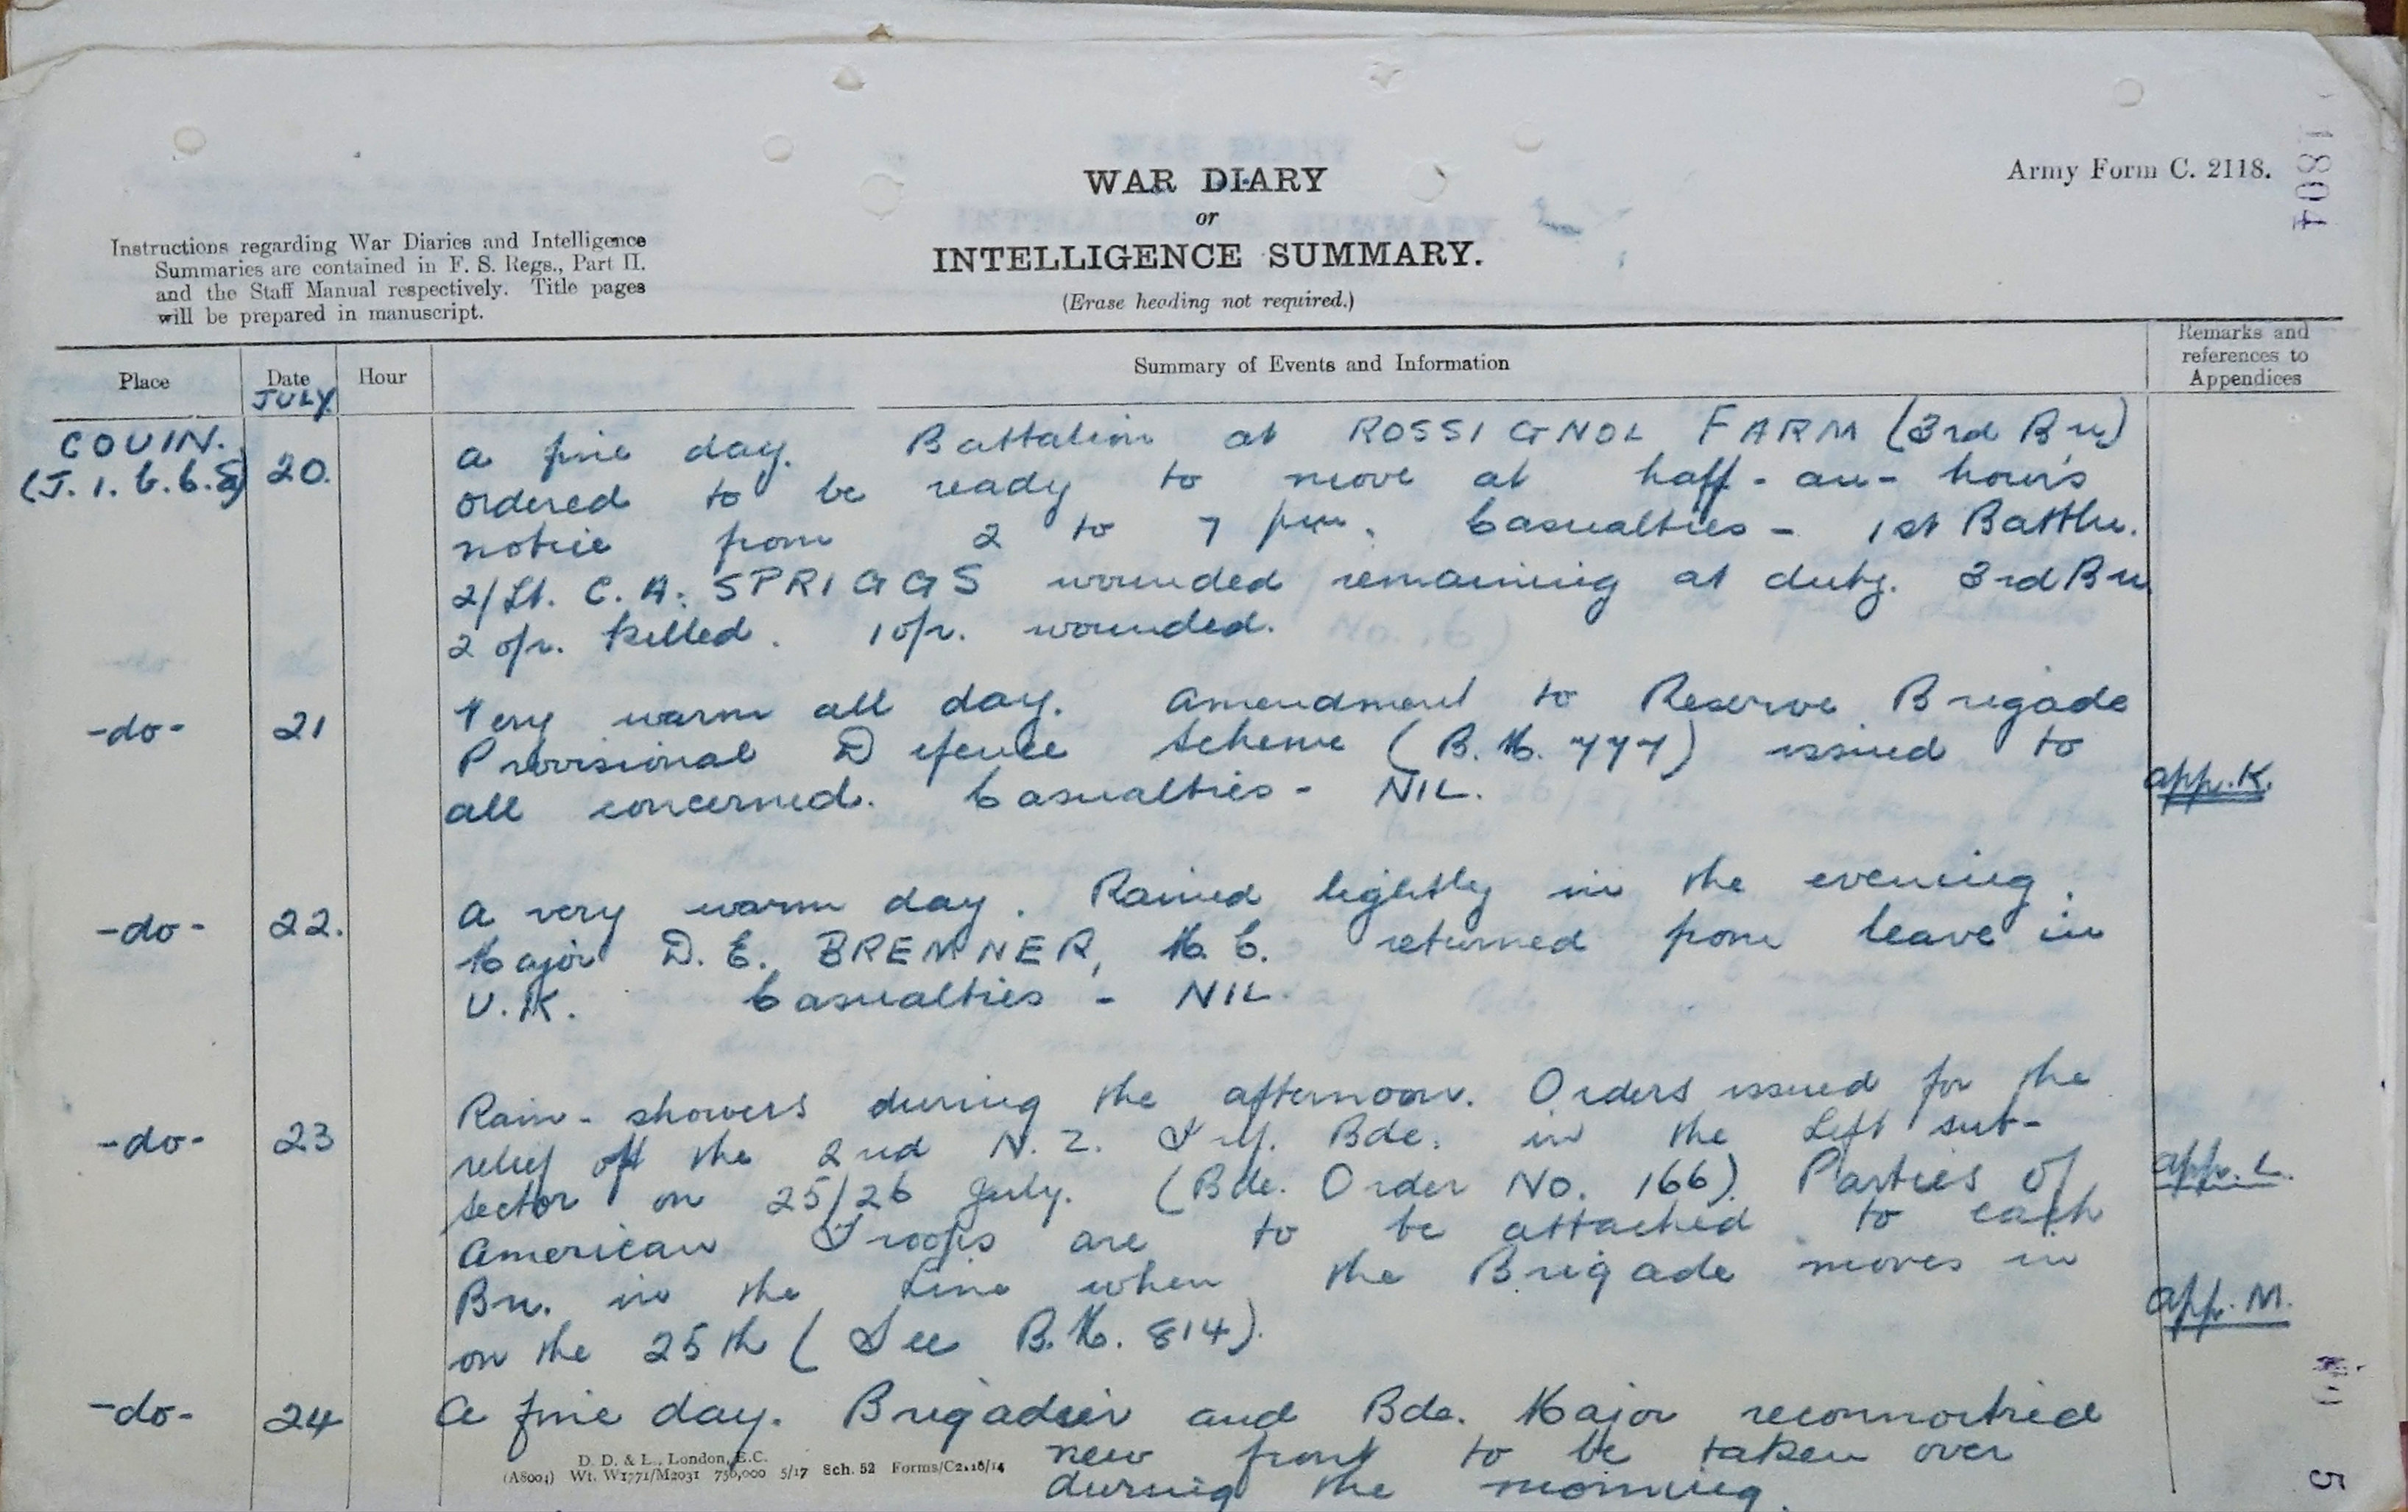 WAR DIARY
or
INTELLIGENCE SUMMARY.
(Erase heading not required.)
Army Form C. 2118.
Instructions regarding War Diaries and Intelligence
Summaries are contained in F. S. Regs., Part II.
and the Staff Manual respectively. Title pages
will be prepared in manuscript.
Place
Date
JULY
Hour
Summary of Events and Information
Remarks and
references to
Appendices
COUIN. 20. A fine day. Battalion at ROSSIGNOL FARM (3rd Bn)
(J. 1. b. 6. 8) ordered to be ready to move at half-an-hour's
notice from 2 to 7 pm. Casualties - 1st Battln.
2/Lt. C. A. SPRIGGS wounded remaining at duty. 3rd Bn
2 o/r. killed. 1 o/r. wounded.
-do- 21 Very warm all day. Amendment to Reserve Brigade
Provisional Defence Scheme (B.M. 777) issued to
all concerned. Casualties - NIL. App. K.
-do- 22. A very warm day. Rained lightly in the evening.
Major D. E. BREMNER, M.C. returned from leave in
U.K. Casualties - NIL.
-do- 23 Rain-showers during the afternoon. Orders issued for the
relief of the 2nd N.Z. Inf. Bde. in the Left sub-
sector on 25/26 July. (Bde. Order No. 166). Parties of App. L.
American Troops are to be attached to each
Bn. in the Line when the Brigade moves in
on the 25th (See B.M. 814). App. M.
-do- 24 A fine day. Brigadier and Bde. Major reconnoitred
new front to be taken over
during the morning.
D. D. & L., London, E.C.
(A8004) Wt. W1771/M2031 750,000 5/17 Sch. 52 Forms/C2118/14
1804
5